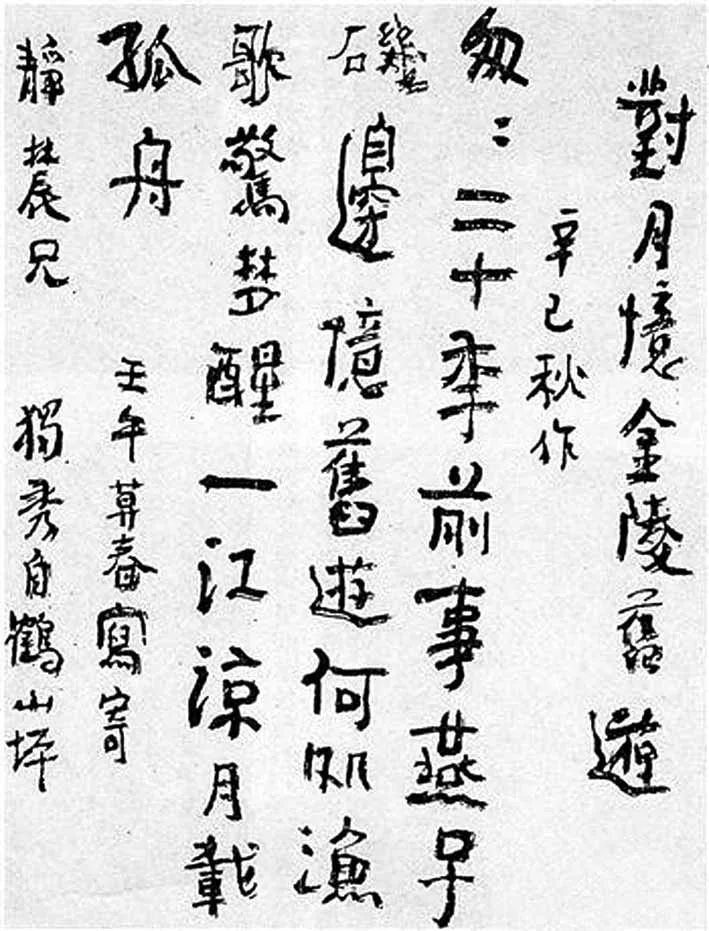 對月憶金陵舊遊
辛巳秋作
匆匆二十季前事燕子
磯邊憶舊遊何処漁
歌驚夢醒一江涼月載
孤舟
壬午暮春寫寄
靜農兄
獨秀自鶴山坪